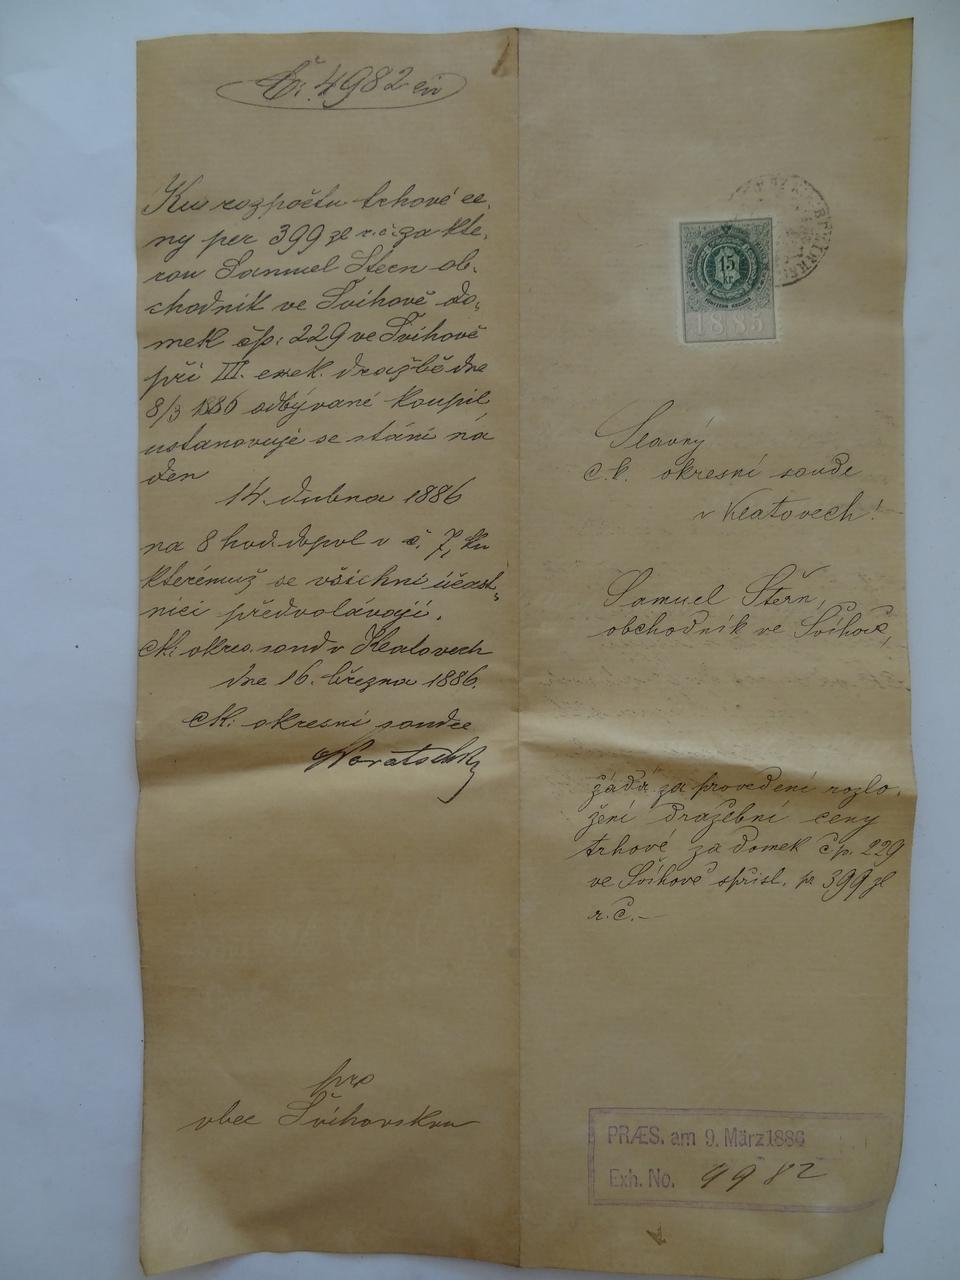 Č: 4982 civ
Ku rozpočtu trhové ce-
ny per 399 zl r.č. za kte-
rou Samuel Stern ob-
chodník ve Švihově do-
mek čp: 229 ve Švihově
při III. exek. dražbě dne
8/3 1886 odbývané koupil
ustanovuje se stání na
den
14. dubna 1886
na 8 hod. dopol v č. 7, ku
kterémuž se všichni účast-
níci předvolávají.
CK: okres. soud v Klatovech
dne 16. března 1886.
CK: okresní soudce
pro
obec Švihovskou
15
kr
1885
Slavný
c. k. okresní soude
v Klatovech!
Samuel Štern,
obchodník ve Švihově,
žádá za provedení rozlo-
žení dražební ceny
trhové za domek čp. 229
ve Švihově s přísl. pr 399 zl
r. č. —
PRÆS. am 9. März 1886
Exh. No. 4982